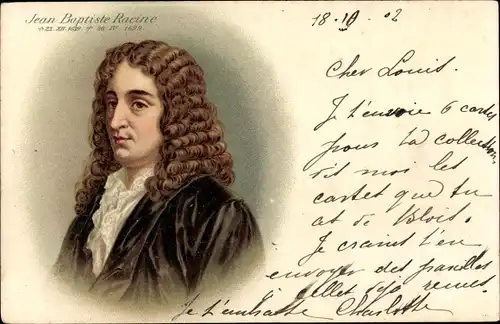 Jean Baptiste Racine
* 22. XII. 1639. † 26. IV. 1699.
18. 10. 02
Cher Louis.
Je t'envoie 6 cartes
pour ta collection
dis moi les
cartes que tu
as de Blois.
Je crains t'en
envoyer des pareilles
à celles que
Je t'embrasse Charlotte